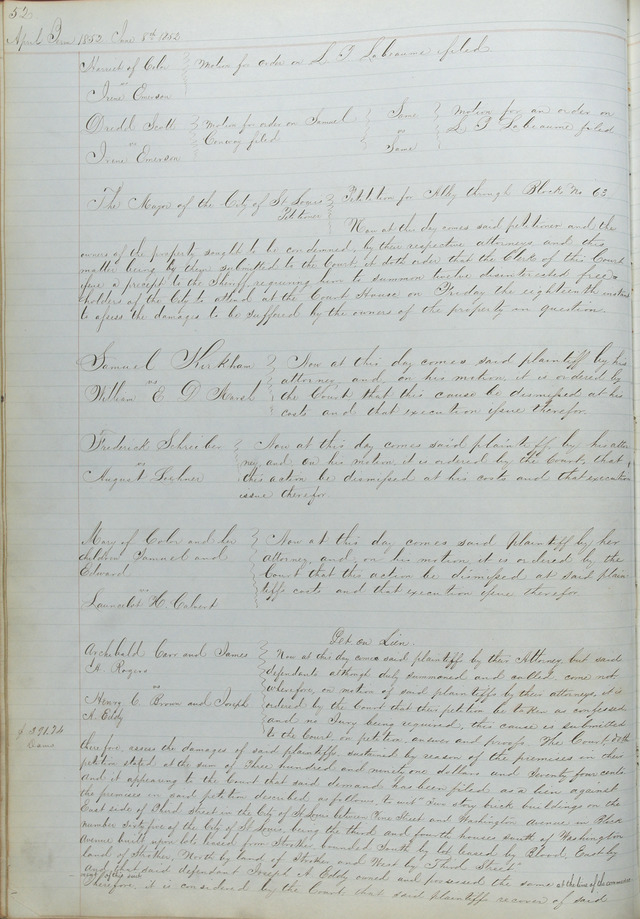 52
April Term 1852 June 8th 1852
Harriet of Color
vs
Irene Emerson
Motion for order on L T Labeaume filed
Dredd Scott
vs
Irene Emerson
Motion for order on Samuel
Conway filed
Same
vs
Same
Motion for an order on
L T Labeaume filed
The Mayor of the City of St Louis
Petitioner
Petition for Alley through Block No 63
Now at this day comes said petitioner and the
owners of the property sought to be condemned, by their respective attorneys, and this
matter being by them submitted to the Court it doth order that the Clerk of this Court
issue a precept to the Sheriff requiring him to summon twelve disinterested free
holders of the City to attend at the Court House on Friday the eighteenth instant
to assess the damages to be suffered by the owners of the property in question.
Samuel Kirkham
vs
William E D
Now at this day comes said plaintiff by his
attorney, and on his motion it is ordered by
the Court that this cause be dismissed at his
costs and that execution issue therefor.
Frederick Schreiber
vs
August
Now at this day comes said plaintiff by his attor
ney, and on his motion it is ordered by the Court, that
this action be dismissed at his costs and that execution
issue therefor.
Mary of Color and her
children Samuel and
Edward
vs
Launcelot H. Calvert
Now at this day comes said plaintiff by her
attorney, and on his motion it is ordered by the
Court that this action be dismissed at said plain
tiffs costs and that execution issue therefor.
Archibald Carr and James
A. Rogers
vs
Henry C. Brown and Joseph
A. Eddy
Pet. on Lien.
Now at this day come said plaintiffs by their Attorney, but said
defendants although duly summoned and called, come not
wherefore, on motion of said plaintiffs by their attorneys, it is
ordered by the Court that their petition be taken as confessed
and no Jury being required, this cause is submitted
to the Court on petition, answer and proofs. The Court doth
$391.74
therefore, assess the damages of said plaintiffs, sustained by reason of the premises in their
petition stated at the sum of Three hundred and ninety one dollars and seventy four cents
And it appearing to the Court that said demand has been filed as a lien against
the premises in said petition described as follows to wit" Two story brick buildings on the
East side of Third Street in the City of St Louis between Vine Street and Washington Avenue in Block
number sixty five of the City of St Louis, being the third and fourth houses south of Washington
Avenue built upon lots leased from Strother bounded South by lot leased by Blood, East by
land of Strother, North by land of Strother and West by Third Street"
And that said defendant Joseph A Eddy owned and possessed the same at the time of the commence
ment of this suit
Therefore, it is considered by the Court that said plaintiffs recover of said